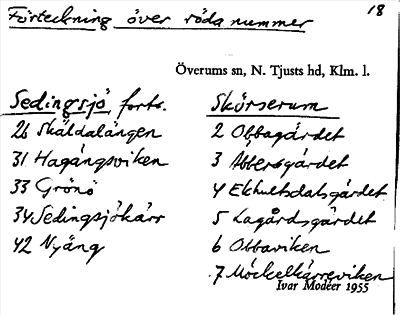 Förteckning över röda nummer
18
Överums sn, N. Tjusts hd, Klm. l.
Sedingsjö forts.
26 Skäldalängen
31 Hagängsviken
33 Grönö
34 Sedingsjökärr
42 Nyäng
Skörserum
2 Obbagärdet
3 Abbersgärdet
4 Ekhultsdalsgärdet
5 Lagårdsgärdet
6 Obbaviken
7 Möckelkärreviken
Ivar Modéer 1955